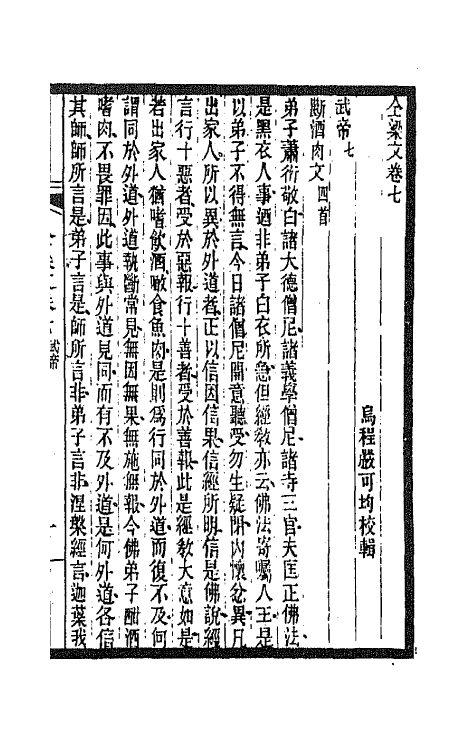 全梁文卷七
烏程嚴可均校輯
武帝 七
斷酒肉文 四首
弟子蕭衍敬白諸大德僧尼諸義學僧尼諸寺三官夫匡正佛法
是黑衣人事迺非弟子白衣所急但經教亦云佛法寄囑人王是
以弟子不得無言今日諸僧尼開意聽受勿生疑閉內懷忿異凡
出家人所以異於外道者正以信因信果信經所明信是佛說經
言行十惡者受於惡報行十善者受於善報此是經教大意如是
若出家人猶嗜飲酒噉食魚肉是則爲行同於外道而復不及何
謂同於外道外道執斷常見無因無果無施無報今佛弟子酣酒
嗜肉不畏罪因此事與外道見同而有不及外道是何外道各信
其師師所言是弟子言是師所言非弟子言非涅槃經言迦葉我
武帝